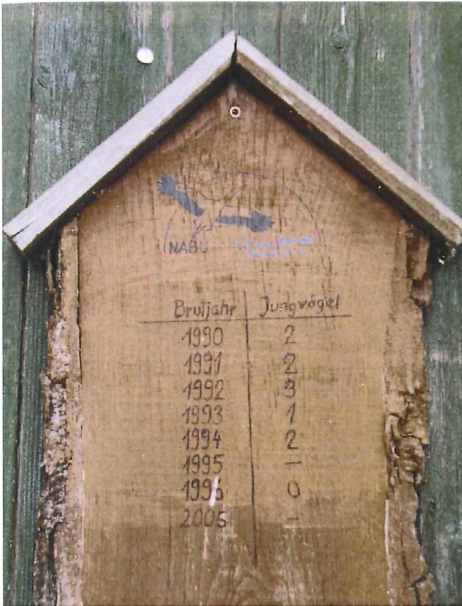 NABU
Brutjahr Jungvögel
1990 2
1991 2
1992 3
1993 1
1994 2
1995 –
1996 0
2005 –